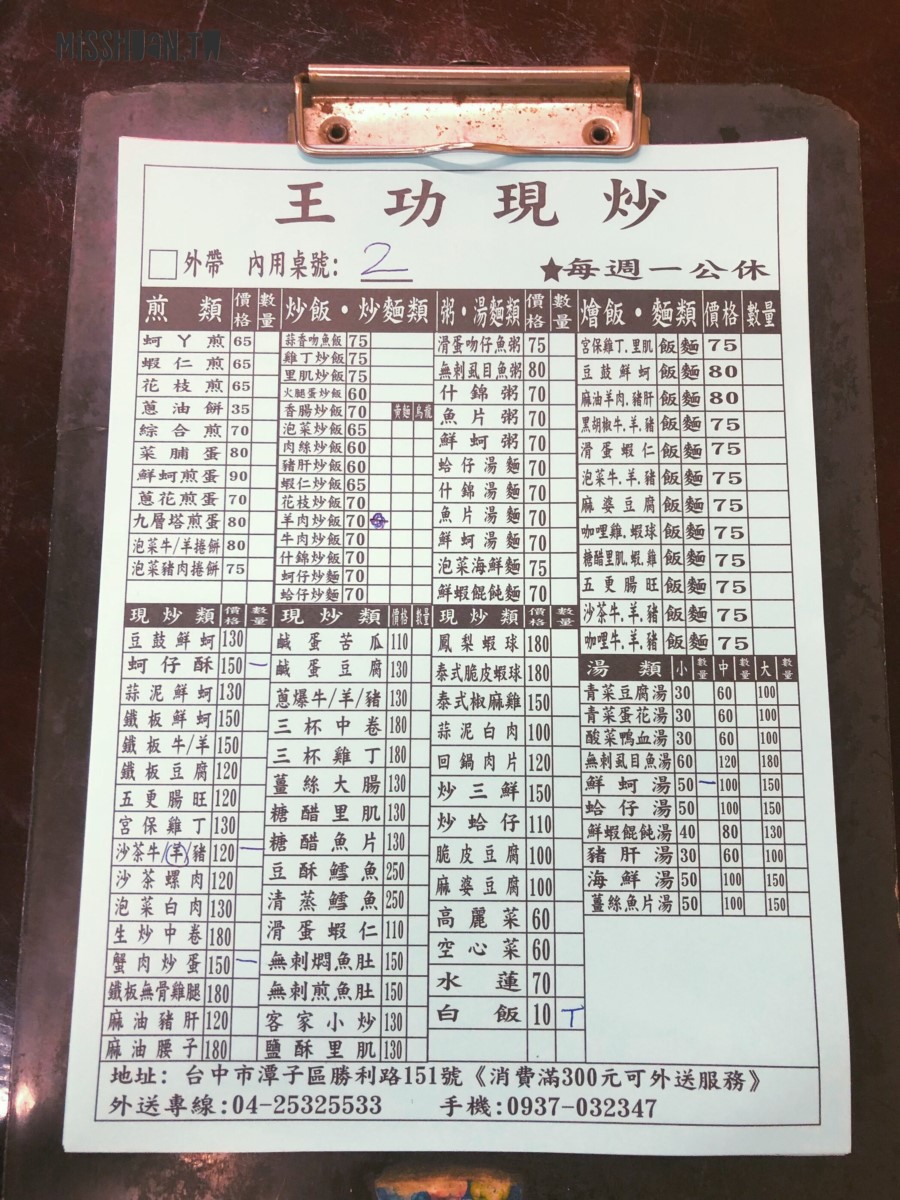 MISSHUAN.TW
王功現炒
外帶 內用桌號: 2 ★每週一公休
煎類 價格 數量
蚵ㄚ煎 65
蝦仁煎 65
花枝煎 65
蔥油餅 35
綜合煎 70
菜脯蛋 80
鮮蚵煎蛋 90
蔥花煎蛋 70
九層塔煎蛋 80
泡菜牛/羊捲餅 80
泡菜豬肉捲餅 75
炒飯・炒麵類
蒜香吻魚飯 75
雞丁炒飯 75
里肌炒飯 75
火腿蛋炒飯 60
香腸炒飯 70 黃麵 烏龍
泡菜炒飯 65
肉絲炒飯 60
豬肝炒飯 60
蝦仁炒飯 65
花枝炒飯 70
羊肉炒飯 70
牛肉炒飯 70
什錦炒飯 70
蚵仔炒麵 70
蛤仔炒麵 70
粥・湯麵類 價格 數量
滑蛋吻仔魚粥 75
無刺虱目魚粥 80
什錦粥 70
魚片粥 70
鮮蚵粥 70
蛤仔湯麵 70
什錦湯麵 70
魚片湯麵 70
鮮蚵湯麵 70
泡菜海鮮麵 75
鮮蝦餛飩麵 70
燴飯・麵類 價格 數量
宮保雞丁.里肌 飯 麵 75
豆鼓鮮蚵 飯 麵 80
麻油羊肉.豬肝 飯 麵 80
黑胡椒牛.羊.豬 飯 麵 75
滑蛋蝦仁 飯 麵 75
泡菜牛.羊.豬 飯 麵 75
麻婆豆腐 飯 麵 75
咖哩雞.蝦球 飯 麵 75
糖醋里肌.蝦.雞 飯 麵 75
五更腸旺 飯 麵 75
沙茶牛.羊.豬 飯 麵 75
咖哩牛.羊.豬 飯 麵 75
現炒類 價格 數量
豆鼓鮮蚵 130
蚵仔酥 150 一
蒜泥鮮蚵 130
鐵板鮮蚵 150
鐵板牛/羊 150
鐵板豆腐 120
五更腸旺 120
宮保雞丁 130
沙茶牛/羊/豬 120 一
沙茶螺肉 120
泡菜白肉 130
生炒中卷 180
蟹肉炒蛋 150 一
鐵板無骨雞腿 180
麻油豬肝 120
麻油腰子 180
現炒類 價格 數量
鹹蛋苦瓜 110
鹹蛋豆腐 130
蔥爆牛/羊/豬 130
三杯中卷 180
三杯雞丁 180
薑絲大腸 130
糖醋里肌 130
糖醋魚片 130
豆酥鱈魚 250
清蒸鱈魚 250
滑蛋蝦仁 110
無刺燜魚肚 150
無刺煎魚肚 150
客家小炒 130
鹽酥里肌 130
現炒類 價格 數量
鳳梨蝦球 180
泰式脆皮蝦球 180
泰式椒麻雞 150
蒜泥白肉 100
回鍋肉片 120
炒三鮮 150
炒蛤仔 110
脆皮豆腐 100
麻婆豆腐 100
高麗菜 60
空心菜 60
水蓮 70
白飯 10 丅
湯類 小 數量 中 數量 大 數量
青菜豆腐湯 30 60 100
青菜蛋花湯 30 60 100
酸菜鴨血湯 30 60 100
無刺虱目魚湯 60 120 180
鮮蚵湯 50 一 100 150
蛤仔湯 50 100 150
鮮蝦餛飩湯 40 80 130
豬肝湯 30 60 100
海鮮湯 50 100 150
薑絲魚片湯 50 100 150
地址: 台中市潭子區勝利路151號《消費滿300元可外送服務》
外送專線:04-25325533 手機:0937-032347